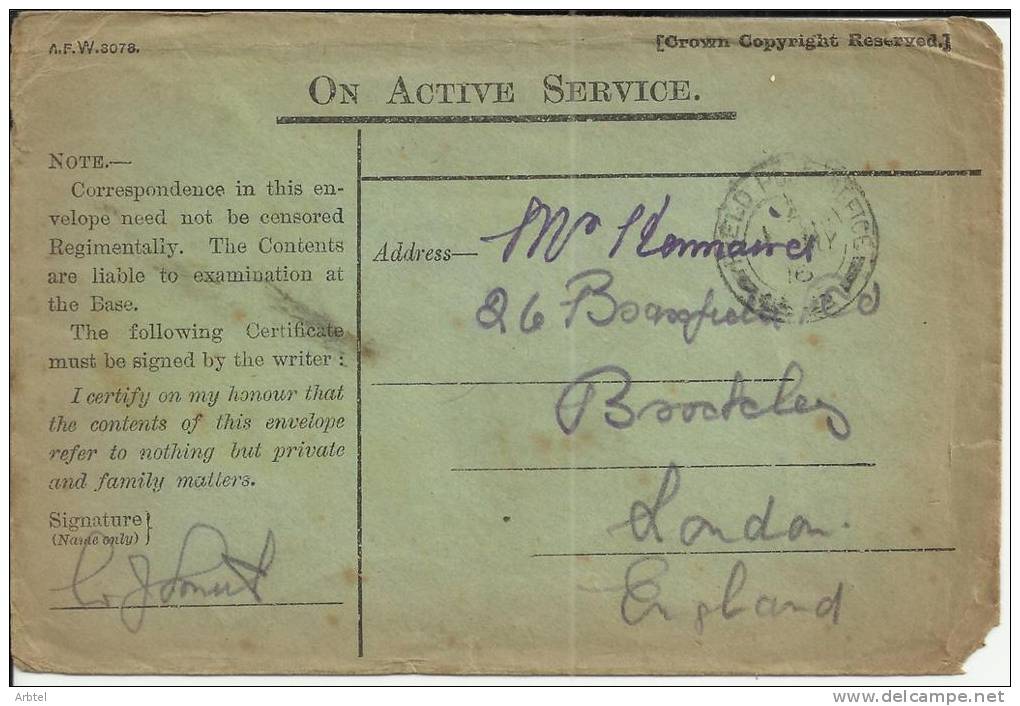 A.F.W.3078.
[Crown Copyright Reserved.]
ON ACTIVE SERVICE.
NOTE.—
Correspondence in this en-
velope need not be censored
Regimentally. The Contents
are liable to examination at
the Base.
The following Certificate
must be signed by the writer:
I certify on my honour that
the contents of this envelope
refer to nothing but private
and family matters.
Signature}
(Name only)
Address—
26
Brockley
London.
England
FIELD POST OFFICE
16
Arbtel
www.delcampe.net